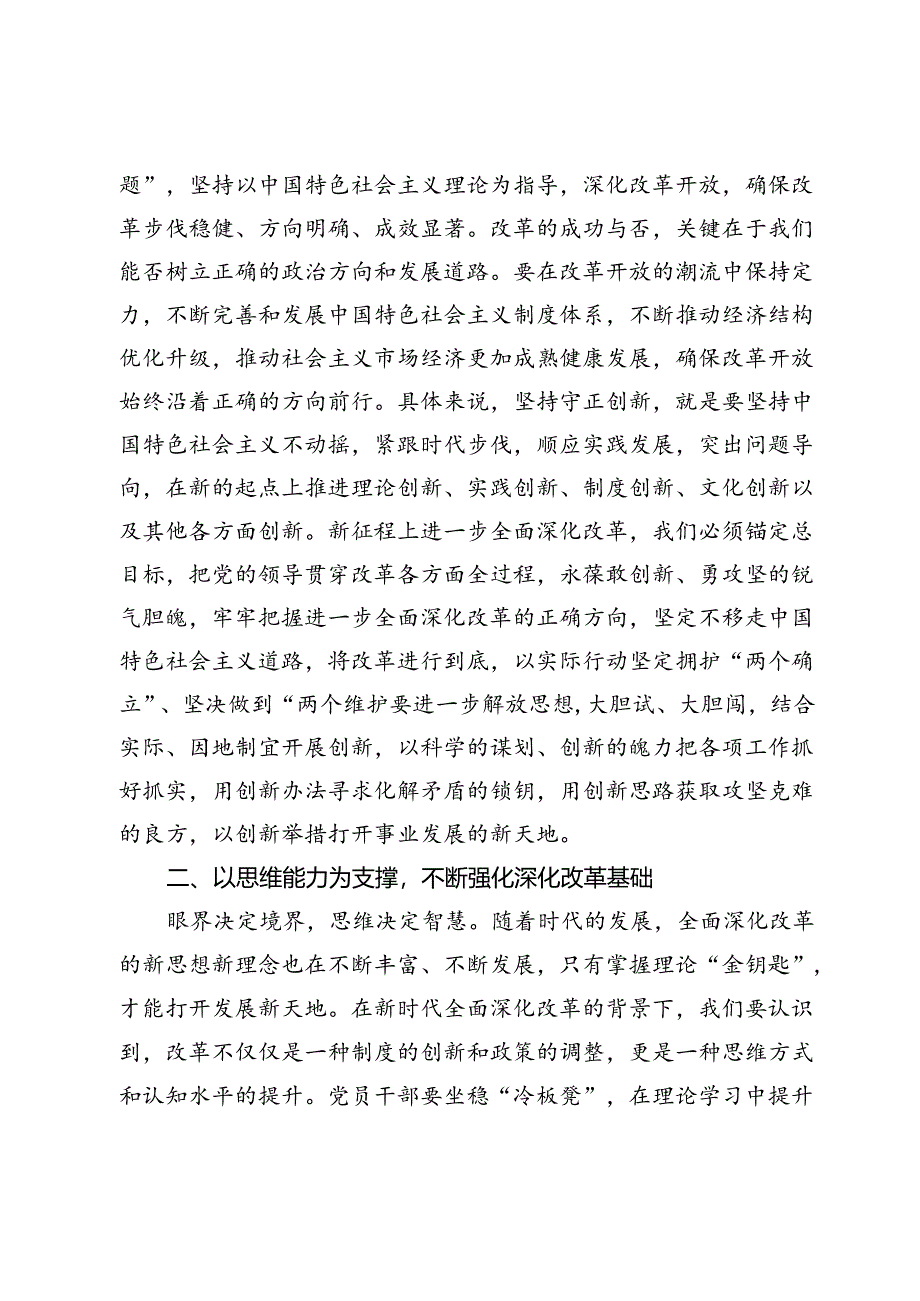 题”，坚持以中国特色社会主义理论为指导，深化改革开放，确保改
革步伐稳健、方向明确、成效显著。改革的成功与否，关键在于我们
能否树立正确的政治方向和发展道路。要在改革开放的潮流中保持定
力，不断完善和发展中国特色社会主义制度体系，不断推动经济结构
优化升级，推动社会主义市场经济更加成熟健康发展，确保改革开放
始终沿着正确的方向前行。具体来说，坚持守正创新，就是要坚持中
国特色社会主义不动摇，紧跟时代步伐，顺应实践发展，突出问题导
向，在新的起点上推进理论创新、实践创新、制度创新、文化创新以
及其他各方面创新。新征程上进一步全面深化改革，我们必须锚定总
目标，把党的领导贯穿改革各方面全过程，永葆敢创新、勇攻坚的锐
气胆魄，牢牢把握进一步全面深化改革的正确方向，坚定不移走中国
特色社会主义道路，将改革进行到底，以实际行动坚定拥护“两个确
立”、坚决做到“两个维护要进一步解放思想,大胆试、大胆闯，结合
实际、因地制宜开展创新，以科学的谋划、创新的魄力把各项工作抓
好抓实，用创新办法寻求化解矛盾的锁钥，用创新思路获取攻坚克难
的良方，以创新举措打开事业发展的新天地。
二、以思维能力为支撑，不断强化深化改革基础
眼界决定境界，思维决定智慧。随着时代的发展，全面深化改革
的新思想新理念也在不断丰富、不断发展，只有掌握理论“金钥匙”，
才能打开发展新天地。在新时代全面深化改革的背景下，我们要认识
到，改革不仅仅是一种制度的创新和政策的调整，更是一种思维方式
和认知水平的提升。党员干部要坐稳“冷板凳”，在理论学习中提升